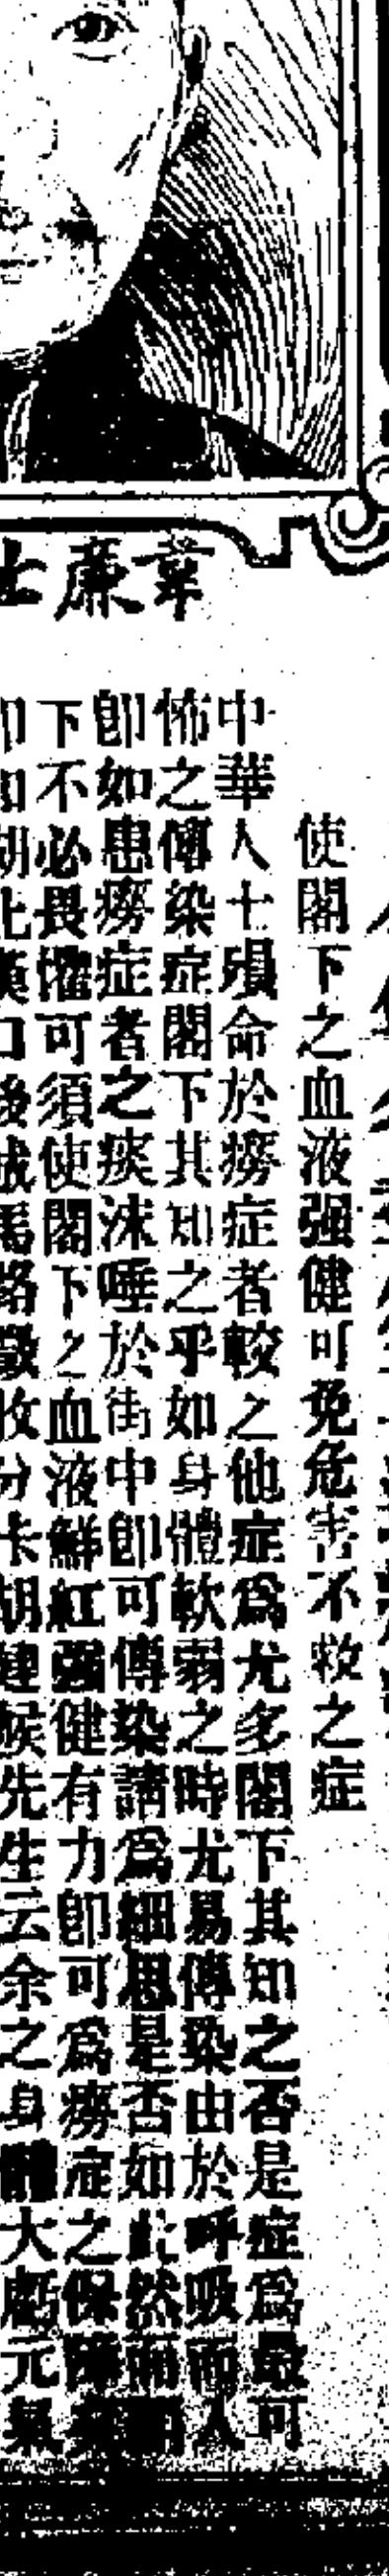 韋廉士
使閣下之血液强健可免危害不救之症
中華人士殞命於癆症者較之他症爲尤多閣下其知之否是症爲最可
怖之傳染症閣下其知之乎如身體軟弱之時尤易傳染由於呼吸而入
卽如患癆症者之痰沫唾於街中卽可傳染請爲細思是否如此然而閣
下不必畏懼可須使閣下之血液鮮紅强健有力卽可爲癆症之保障
卽如湖北漢口後城馬路徵收分卡胡建候先生云余之身體大虧元氣